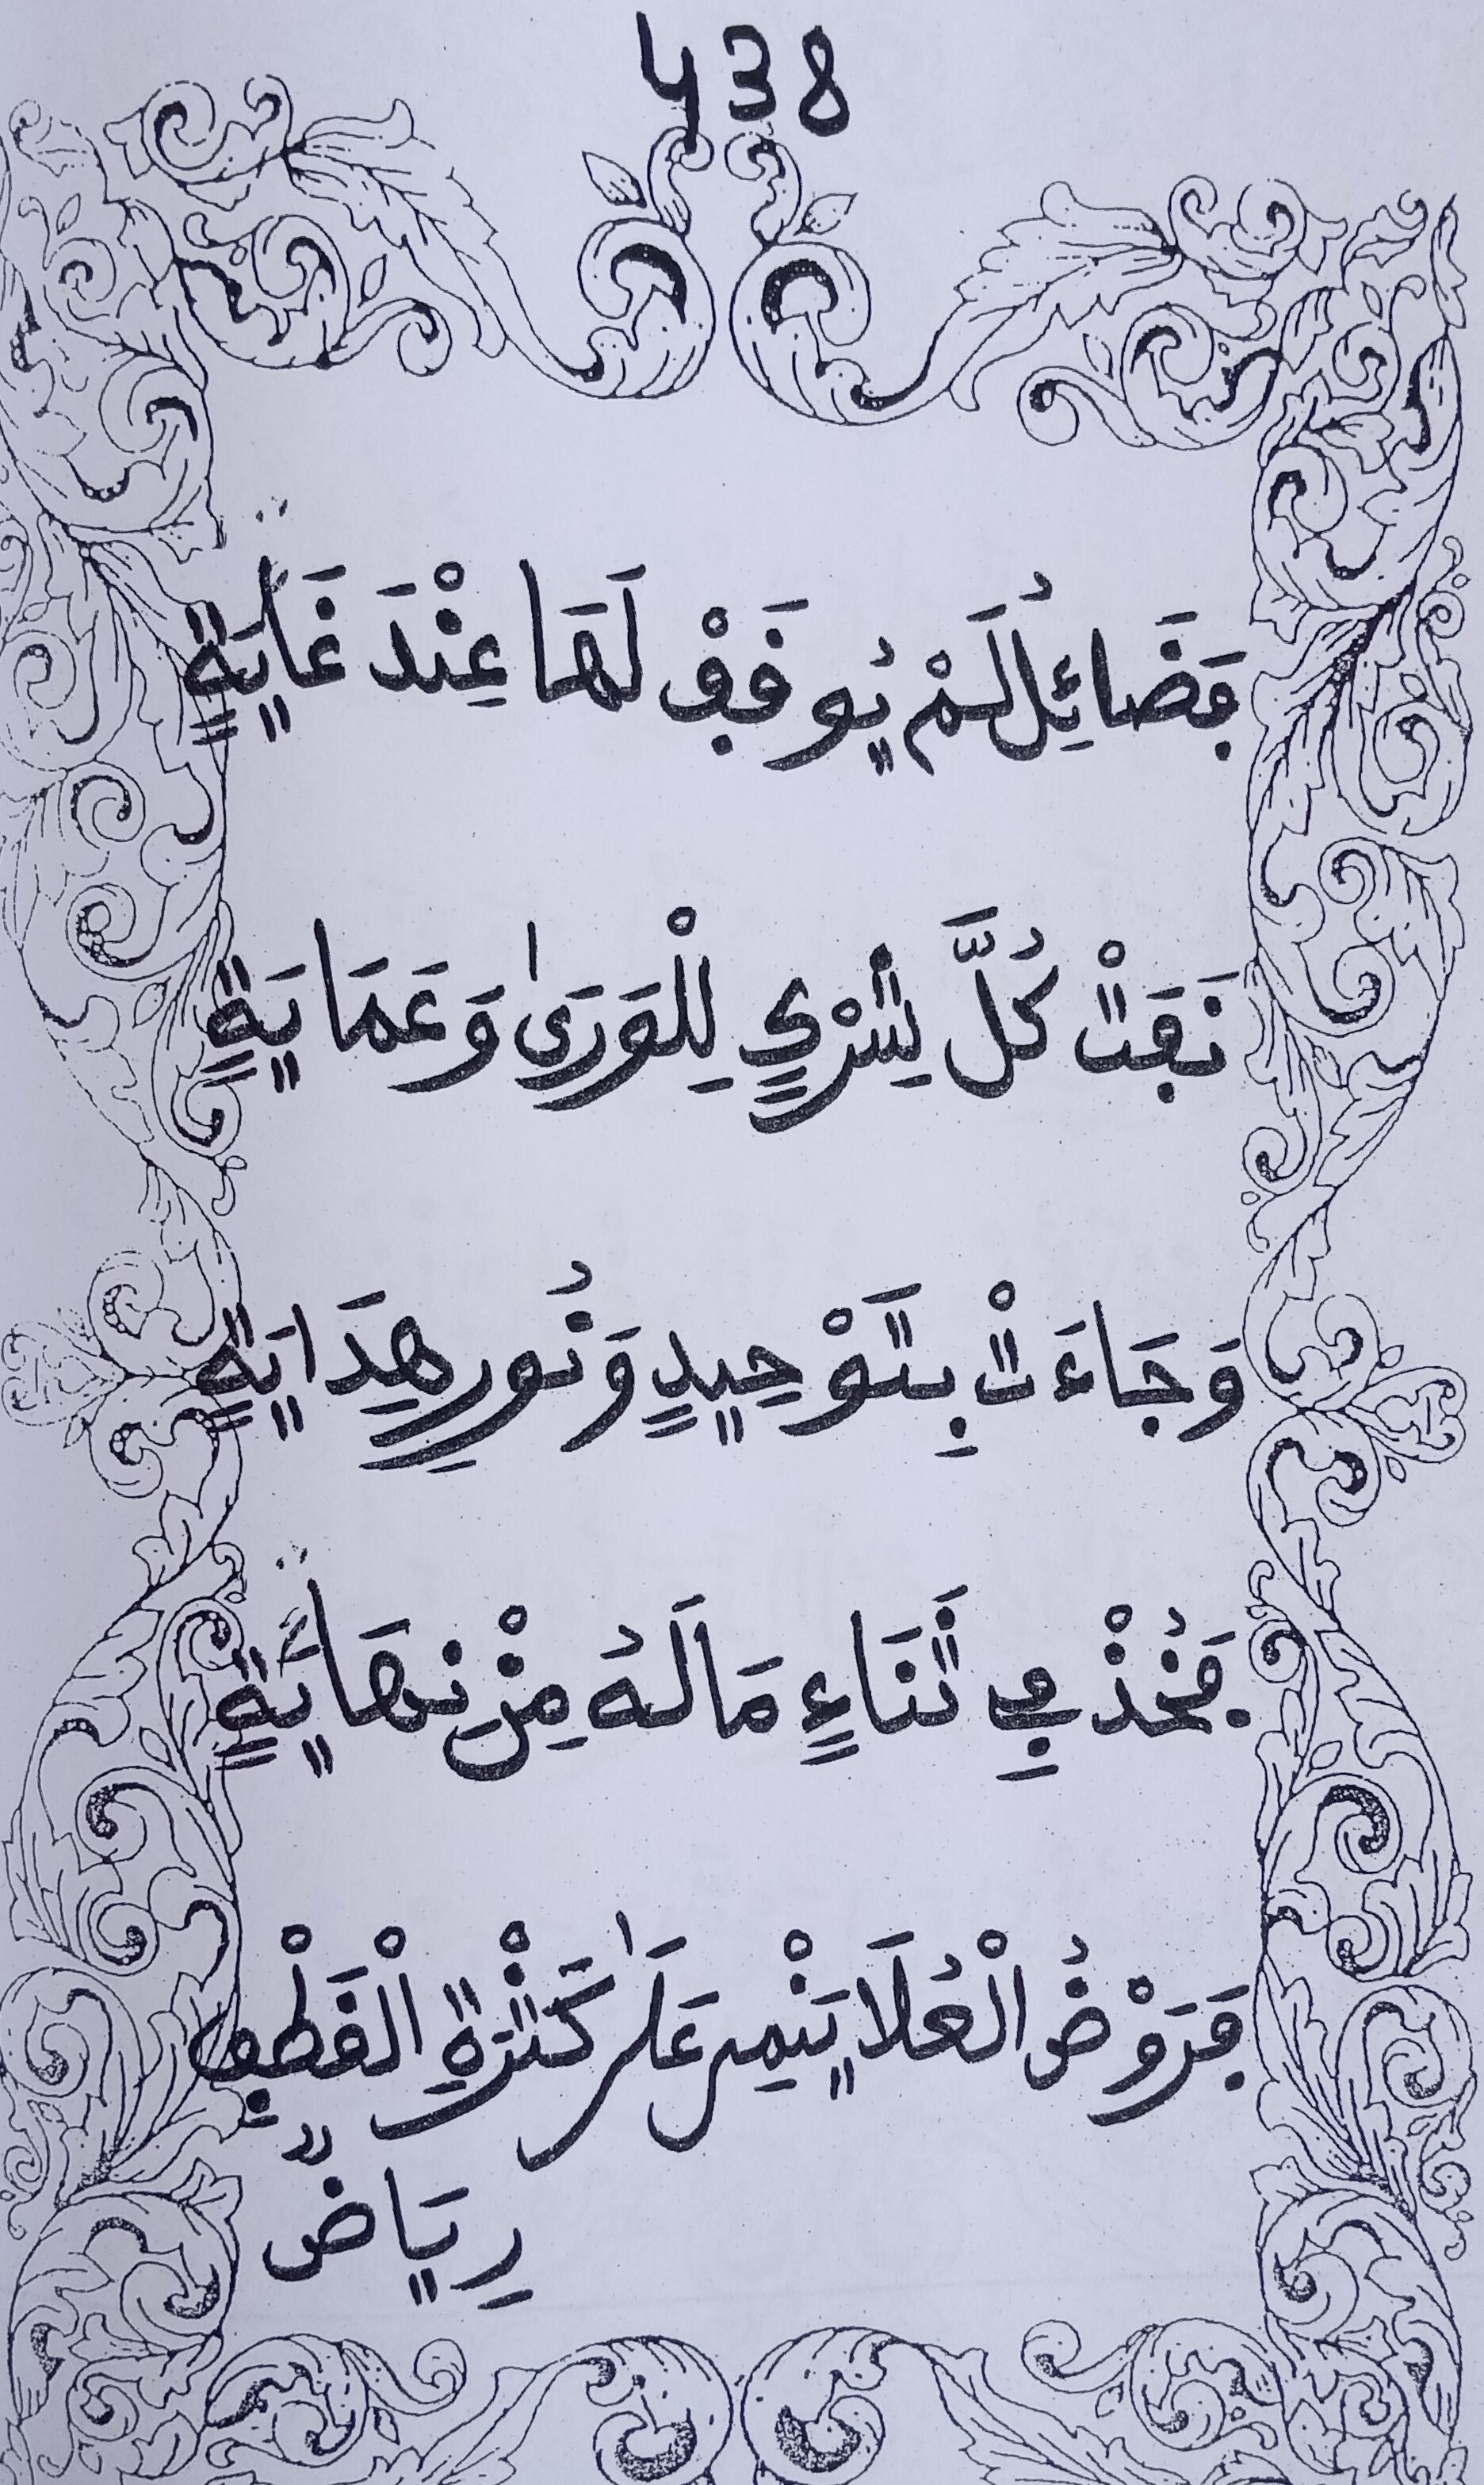 438
فَضَائِلُ لَمْ يُوقَفْ لَهَا عِنْدَ غَايَةٍ
نَفَتْ كُلَّ شِرْكٍ لِلْوَرَىٰ وَعَمَايَةٍ
وَجَاءَتْ بِتَوْحِيدٍ وَنُورِ هِدَايَةٍ
فَخُذْ فِي ثَنَاءٍ مَالَهُ مِنْ نِهَايَةٍ
فَرَوْضُ الْعُلَا يَنْمِى عَلَىٰ كَثْرَةِ الْقَطْفِ
رِيَاضٌ